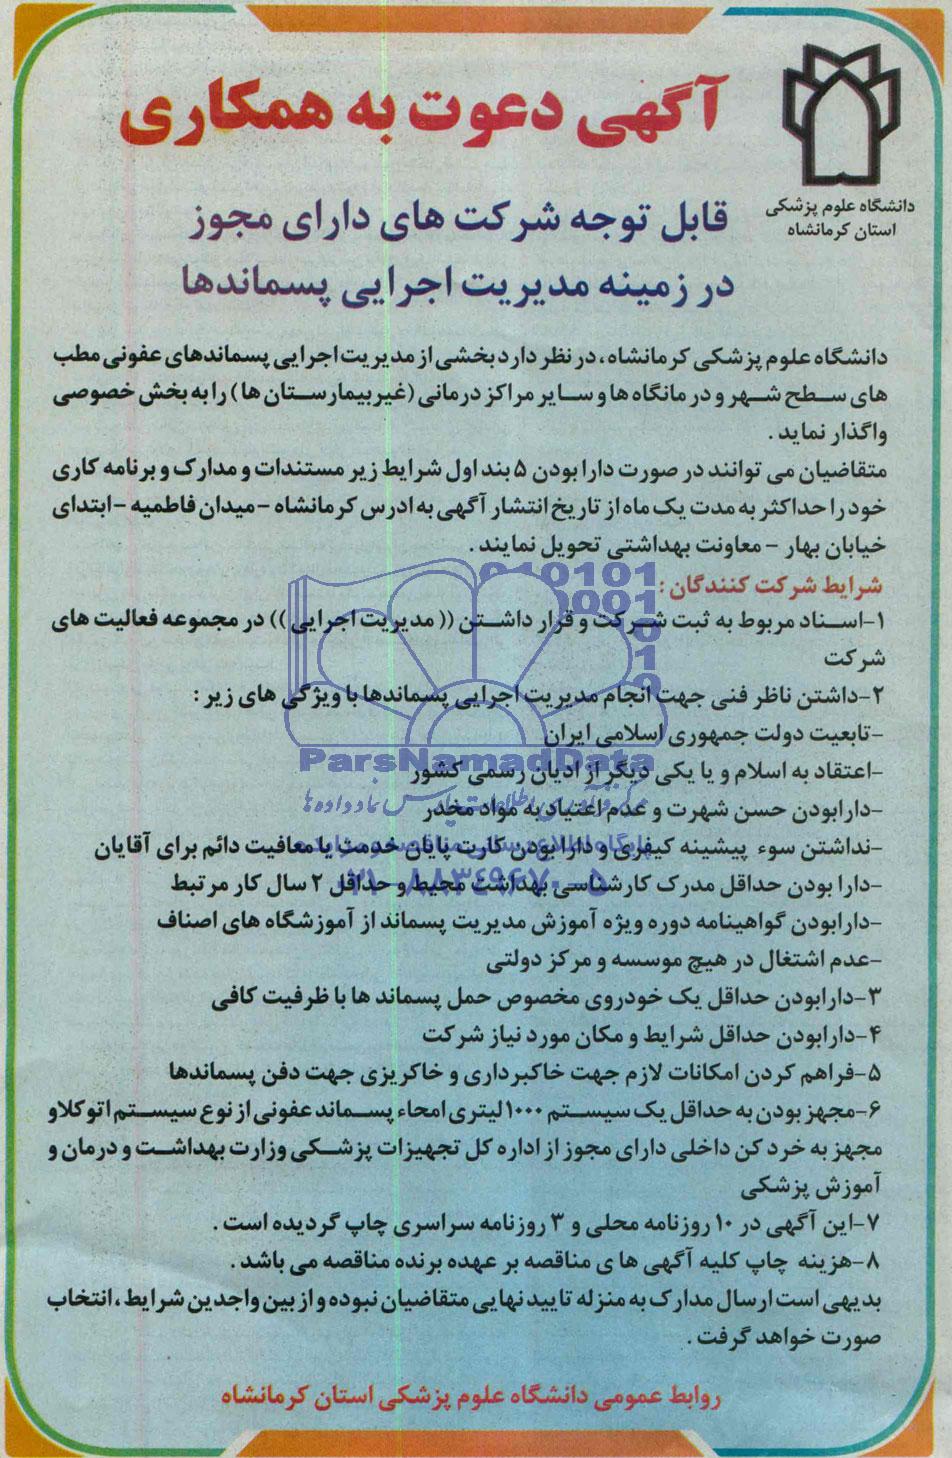 آگهی دعوت به همکاری
دانشگاه علوم پزشکی
استان کرمانشاه
قابل توجه شرکت های دارای مجوز
در زمینه مدیریت اجرایی پسماندها
دانشگاه علوم پزشکی کرمانشاه، در نظر دارد بخشی از مدیریت اجرایی پسماندهای عفونی مطب
های سطح شهر و درمانگاه ها و سایر مراکز درمانی (غیر بیمارستان ها) را به بخش خصوصی
واگذار نماید .
متقاضیان می توانند در صورت دارا بودن ۵ بند اول شرایط زیر مستندات و مدارک و برنامه کاری
خود را حداکثر به مدت یک ماه از تاریخ انتشار آگهی به ادرس کرمانشاه - میدان فاطمیه - ابتدای
خیابان بهار - معاونت بهداشتی تحویل نمایند .
شرایط شرکت کنندگان :
۱-اسناد مربوط به ثبت شرکت و قرار داشتن (( مدیریت اجرایی )) در مجموعه فعالیت های
شرکت
۲-داشتن ناظر فنی جهت انجام مدیریت اجرایی پسماندها با ویژگی های زیر :
-تابعیت دولت جمهوری اسلامی ایران
-اعتقاد به اسلام و یا یکی دیگر از ادیان رسمی کشور
-دارابودن حسن شهرت و عدم اعتیاد به مواد مخدر
-نداشتن سوء پیشینه کیفری و دارابودن کارت پایان خدمت یا معافیت دائم برای آقایان
-دارا بودن حداقل مدرک کارشناسی بهداشت محیط و حداقل ۲ سال کار مرتبط
-دارابودن گواهینامه دوره ویژه آموزش مدیریت پسماند از آموزشگاه های اصناف
-عدم اشتغال در هیچ موسسه و مرکز دولتی
۳-دارابودن حداقل یک خودروی مخصوص حمل پسماند ها با ظرفیت کافی
۴-دارابودن حداقل شرایط و مکان مورد نیاز شرکت
۵-فراهم کردن امکانات لازم جهت خاکبرداری و خاکریزی جهت دفن پسماندها
۶-مجهز بودن به حداقل یک سیستم ۱۰۰۰ لیتری امحاء پسماند عفونی از نوع سیستم اتوکلاو
مجهز به خرد کن داخلی دارای مجوز از اداره کل تجهیزات پزشکی وزارت بهداشت و درمان و
آموزش پزشکی
۷-این آگهی در ۱۰ روزنامه محلی و ۳ روزنامه سراسری چاپ گردیده است .
۸-هزینه چاپ کلیه آگهی ها ی مناقصه بر عهده برنده مناقصه می باشد .
بدیهی است ارسال مدارک به منزله تایید نهایی متقاضیان نبوده و از بین واجدین شرایط ، انتخاب
صورت خواهد گرفت .
روابط عمومی دانشگاه علوم پزشکی استان کرمانشاه
ParsNamadData
۰۲۱-۸۸۳۴۹۶۷۰-۵